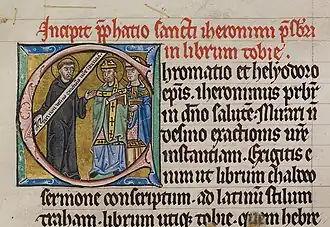 Incipit p̄hatio sancti iheronimi p̄sb̄ri
in librum tobie.
Chromatio et helyodoro
ep̄is. iheronimus prb̄r
in d̄no salutē. Mirari n̄
desino exactionis ur̄e
instantiam. Exigitis e
nim ut librum chaldeo
sermone conscriptum. ad latinū stilum
traham. librum utiq; tobie. quem hebre